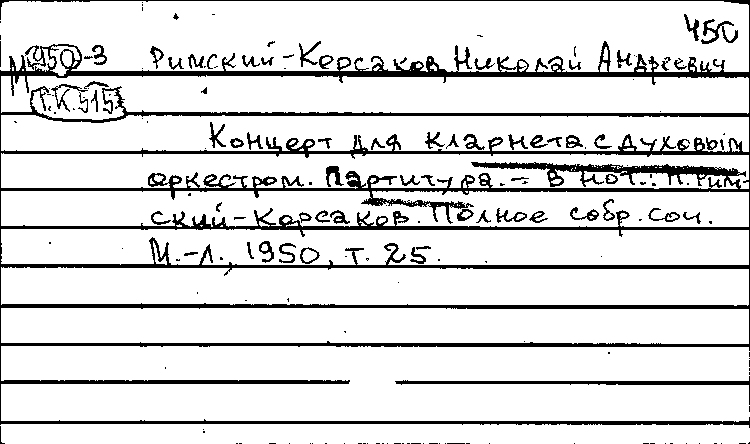 450
М 950-3 Римский-Корсаков, Николай Андреевич
Т.К.515
Концерт для кларнета с духовым
оркестром. Партитура. – В нот.: Н. Рим-
ский-Корсаков. Полное собр. соч.
М.-Л., 1950, т. 25.